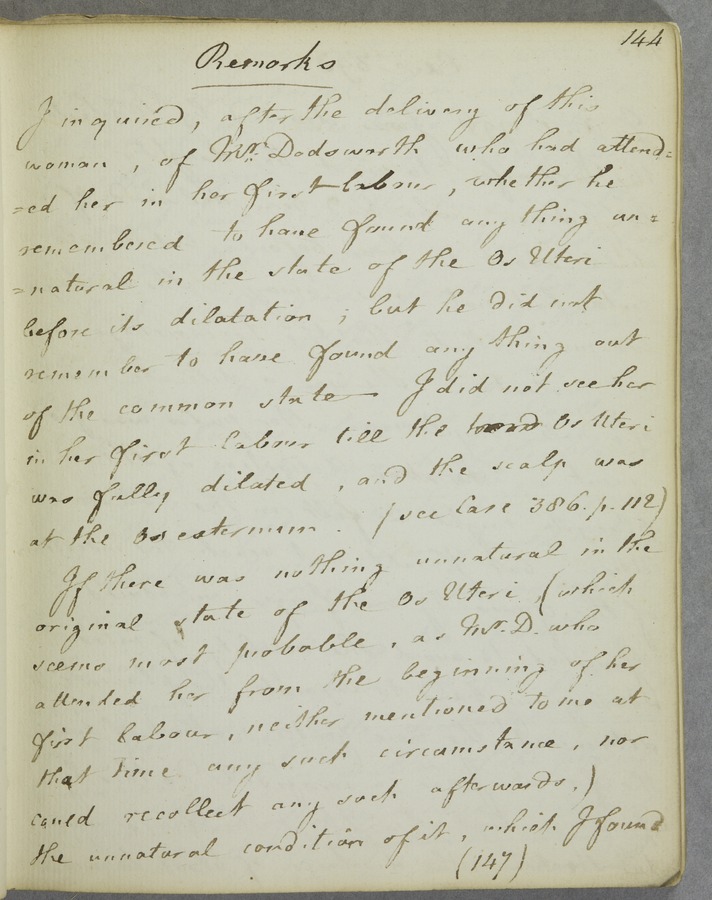 144
Remarks
I inquired, after the delivery of this
woman, of Mr. Dodsworth who had attend=
=ed her in her first labour, whether he
remembered to have found any thing un=
=natural in the state of the Os Uteri
before its dilatation; but he did not
remember to have found any thing out
of the common state— I did not see her
in her first labour till the Os Uteri
was fully dilated, and the scalp was
at the Os externum. (see Case 386. p. 112)
If there was nothing unnatural in the
original state of the Os Uteri, (which
seems most probable, as Mr. D. who
attended her from the beginning of her
first labour, neither mentioned to me at
that time any such circumstance, nor
could recollect any such afterwards,)
the unnatural condition of it, which I found
(147)